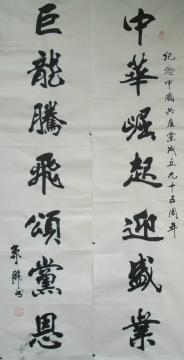 紀念中國共產黨成立九十五周年
中華崛起迎盛業
巨龍騰飛頌黨恩